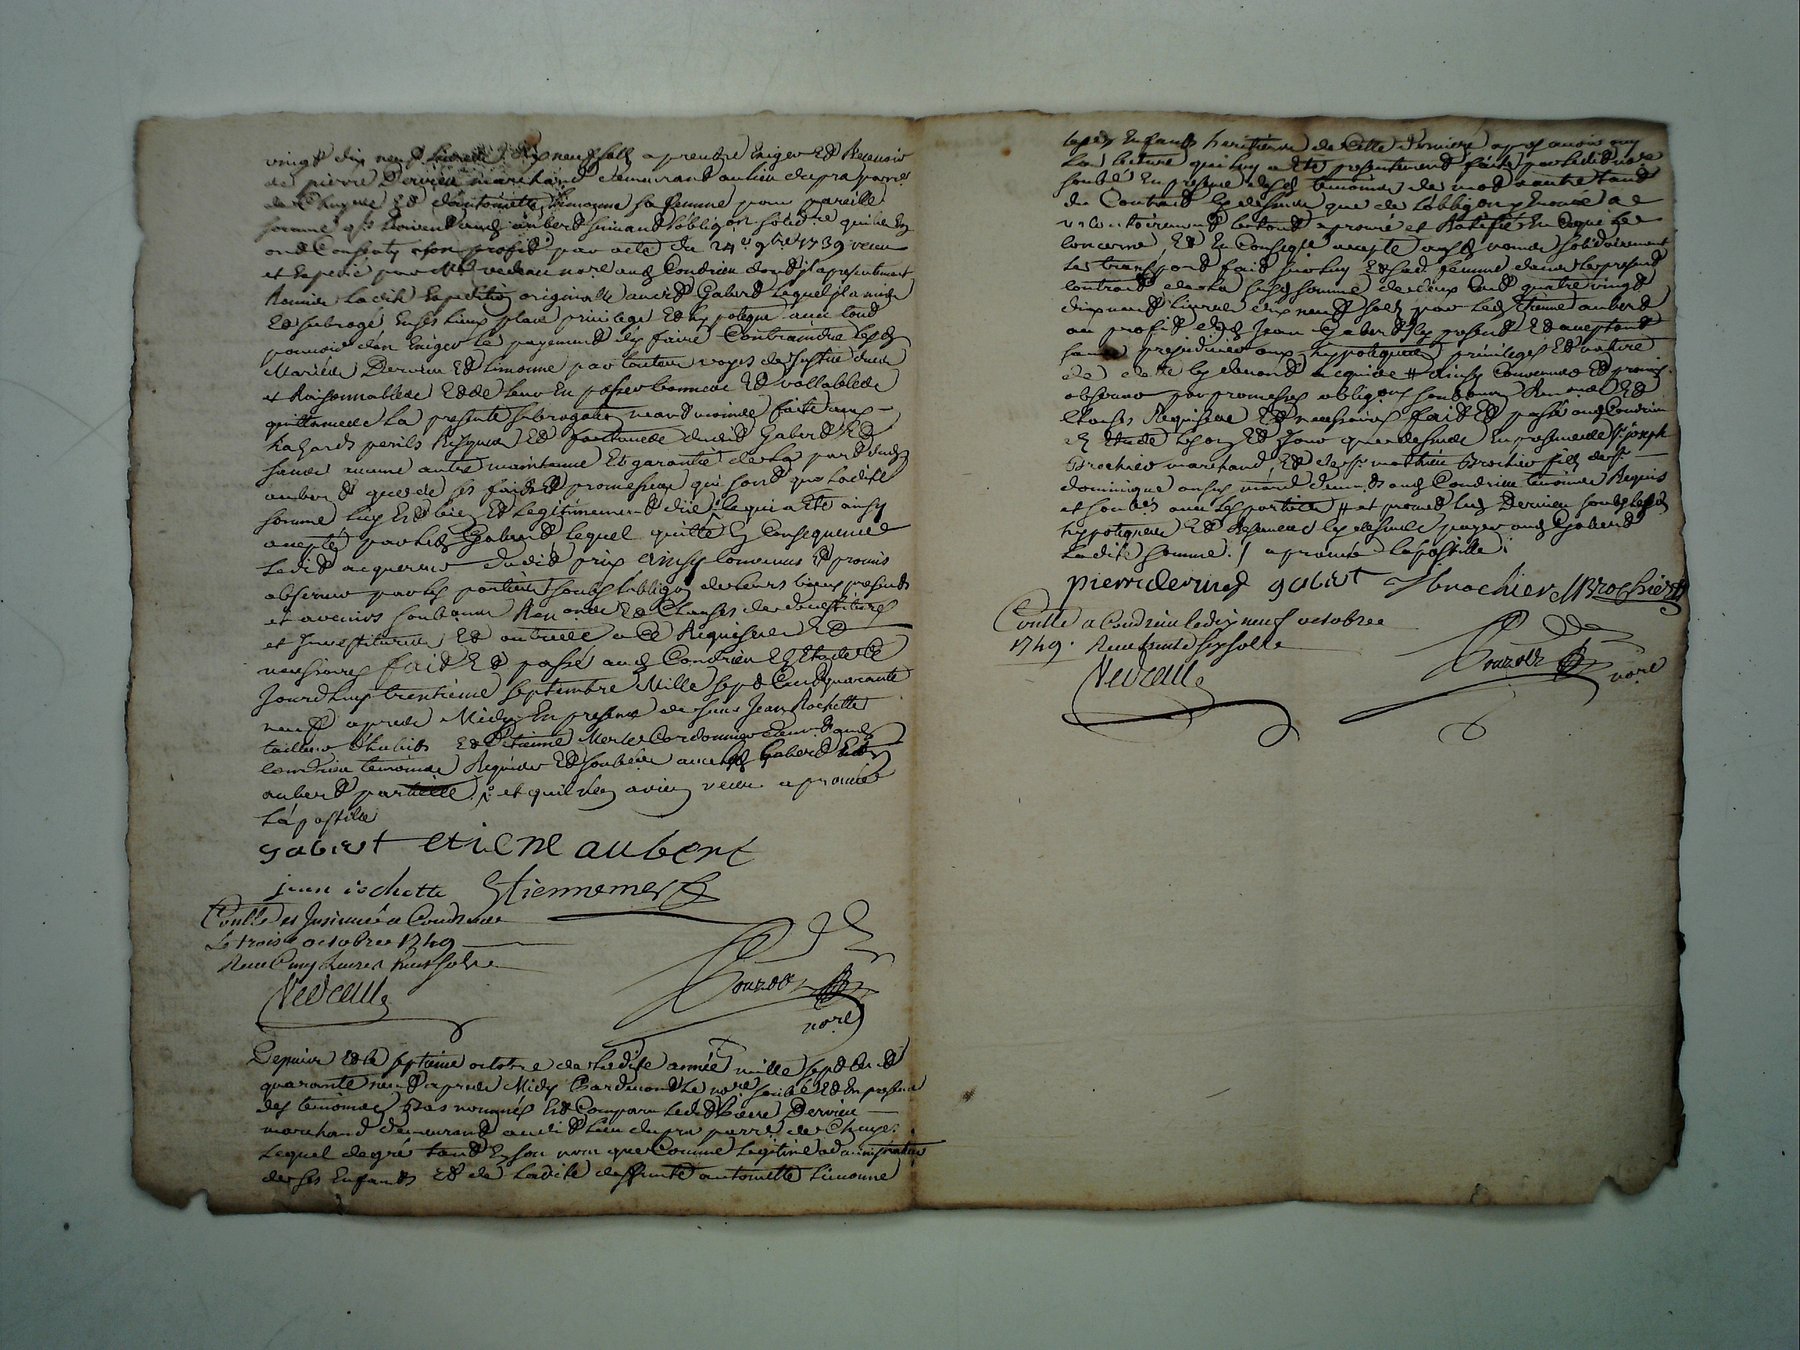 vingt dix neuf livres dix neuf sols a prendre Exiger Et Recevoir
de pierre Dervieu marchand demeurant au lieu du pra
de Chuyes Et d'antoinette Limonne sa femme pour pareille
somme audt aubert suivant l'obligon solidre qu'ils En
ont Consenty a son profit par acte du 24e 9bre 1739 receu
et Expedié par Me vedeau nore audt Condrieu dont il a presentement
Remis Ladite Expedition originalle audit Gabert Lequel il a mis
Et subrogé En ses lieux place privilege Et hypoteque avec tout
pouvoir d'en Exiger le payement d'y faire Contraindre lesdts
Mariés Dervieu Et Limonne par toutes voyes de Justice dues
et Raisonnables Et de leur En passer bonnes Et vallables
quittances La presente subrogation neantmoins faite aux
hazards perils Risques Et fortunes dudit Gabert Et
sans aucune autre maintenue Et garantie de la part dudt
aubert que de ses faits Et promesses qui sont que Ladite
somme luy Est bien Et Legitimement due ce qui a Eté ainsy
accepté par ledt Gabert Lequel quitte En Consequence
Ledit acquereur dudit prix ainsy Convenus Et promis
observer par les parties sous l'obligon de leurs biens presents
et avenirs soubmon Renon Et Clauses de devestitures
et Investitures Et autres a Ce Requises Et
necessaires fait Et passé audt Condrieu En Etude Ce
Jourd'huy trentieme septembre Mille sept Cent quarante
neuf apres Midy En presence de sieurs Jean Rochette
tailleur d'habits Et Etienne Merle Cordonnier demts audt
Condrieu temoins Requis Et soubsignés avec lesdts Gabert Et
aubert parties et a prouvé
L'apostille
gabert etiene aubert
jean rochette Etiennemerle
Conllé et Insinué a Condrieu
Le trois octobre 1749
Receu Cinq livres huit sols
Vedeau
nore
Depuis Et le septieme octobre de Ladite année mille sept Cent
quarante neuf apres Midy Pardevant Le nore soubsé Et En presence
des temoins bas nommés Est Comparu Ledit Pierre Dervieu
marchand demeurant audit Lieu du pra de Chuyes
Lequel de gré tant En son nom que Comme Legitime administrateur
de ses Enfants Et de Ladite deffunte antoinette Limonne
lesdts Enfants heritiers de Cette derniere apres avoir ouy
La lecture qui luy a Eté presentement faite par Ledit nore
soubsé En presence desdts temoins de mot a autre tant
du Contrat Cy dessus que de l'obligon y Enoncée a
volontairement le tout aprouvé et Ratifié En Ce qui Le
Concerne Et En Conseqce accepté
Le transport fait sur luy Et sad. femme dans Le present
Contrat de la susd. somme de deux Cent quatre vingt
dix neuf livres dix neuf sols par Ledt Etienne aubert
au profit dudt Jean Gabert icy present Et acceptant
sans prejudicier aux hypoteques privileges Et nature
de dette Cy devant acquise # ainsy Convenus Et promis
observer par promesses obligons soubmons Renons Et
Clauses Requises Et necessaires fait Et passé audt Condrieu
En Etude Les an Et Jour que dessus En presence de sr Joseph
Brochier marchand Et de sr mathieu Brochier fils de sr
dominique aussy mard demts audt Condrieu temoins Requis
et soubsés avec les parties # et promet ledt Dervieu soubs lesdts
hypoteques Et Cy dessus payer audt Gabert
Ladite somme. / a prouvé L'apostille
pierre dervieu gabert Jbrochier MBrochier
Conllé a Condrieu le dix neuf octobre
1749. Receu sols
Vedeau
nore